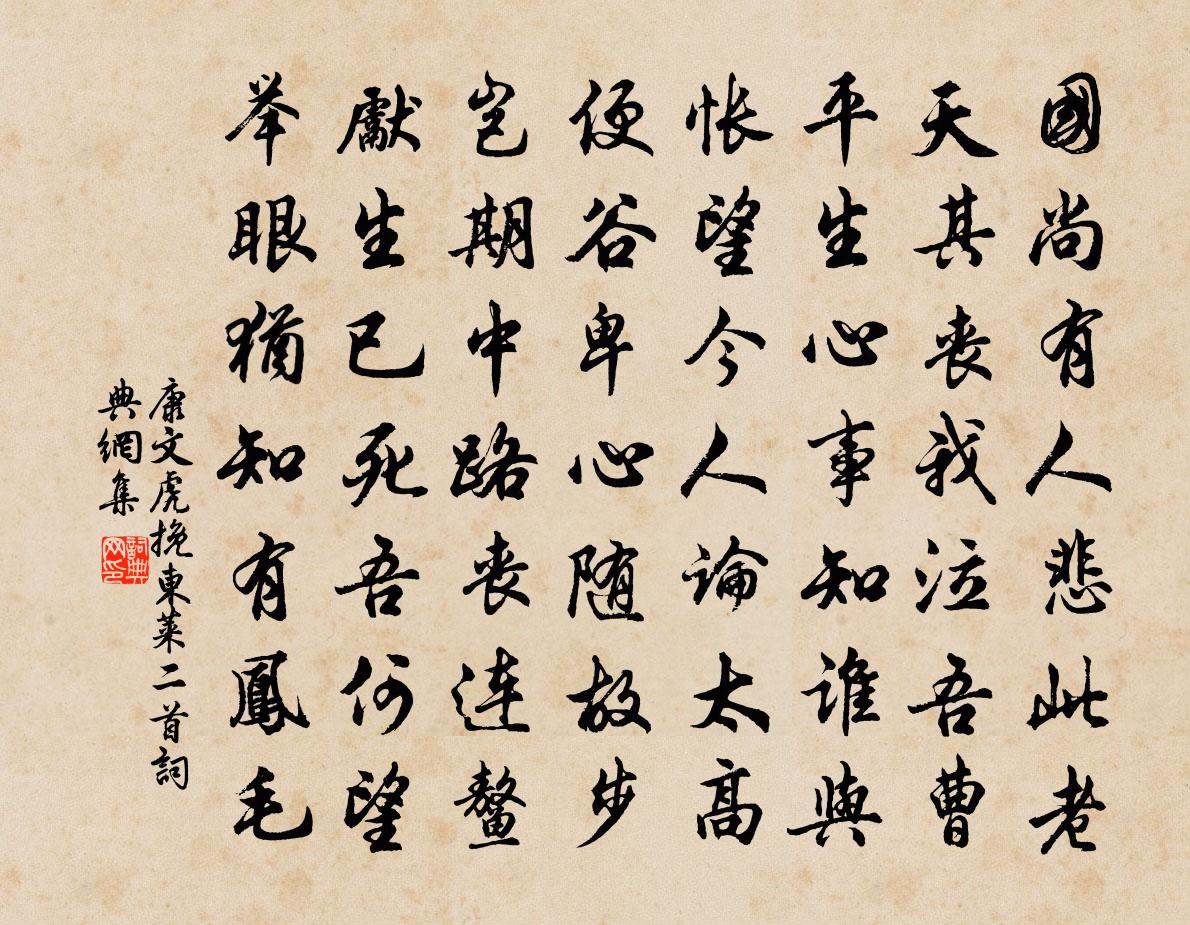 國尚有人悲此老
天其丧我泣吾曹
平生心事知谁與
怅望今人論太高
便谷卑心随故步
岂期中路丧连鳌
獻生已死吾何望
举眼犹知有鳳毛
康文虎挽東莱二首詞
典網集
詞典网印